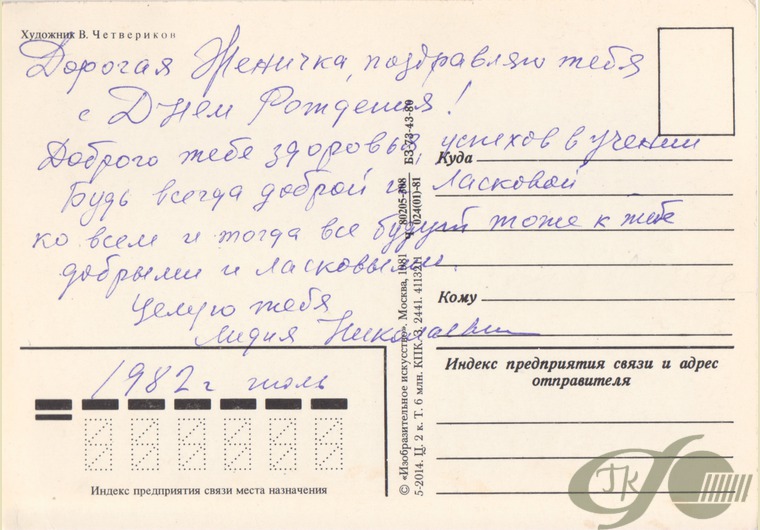 Художник В. Четвериков
Дорогая Женичка, поздравляю тебя
с Днем Рождения!
Доброго тебе здоровья, успехов в учении
Будь всегда доброй и ласковой
ко всем и тогда все будут тоже к тебе
добрыми и ласковыми.
Целую тебя
Лидия Николаевна
1982 г июль
Куда
Кому
Индекс предприятия связи и адрес
отправителя
Индекс предприятия связи места назначения
© «Изобразительное искусство». Москва, 1981
5-2014. Ц. 2 к. Т. 6 млн. КПК. З. 2441. 411321
Ч 80205-308 БЗ-73-43-80
024(01)-81
ГК